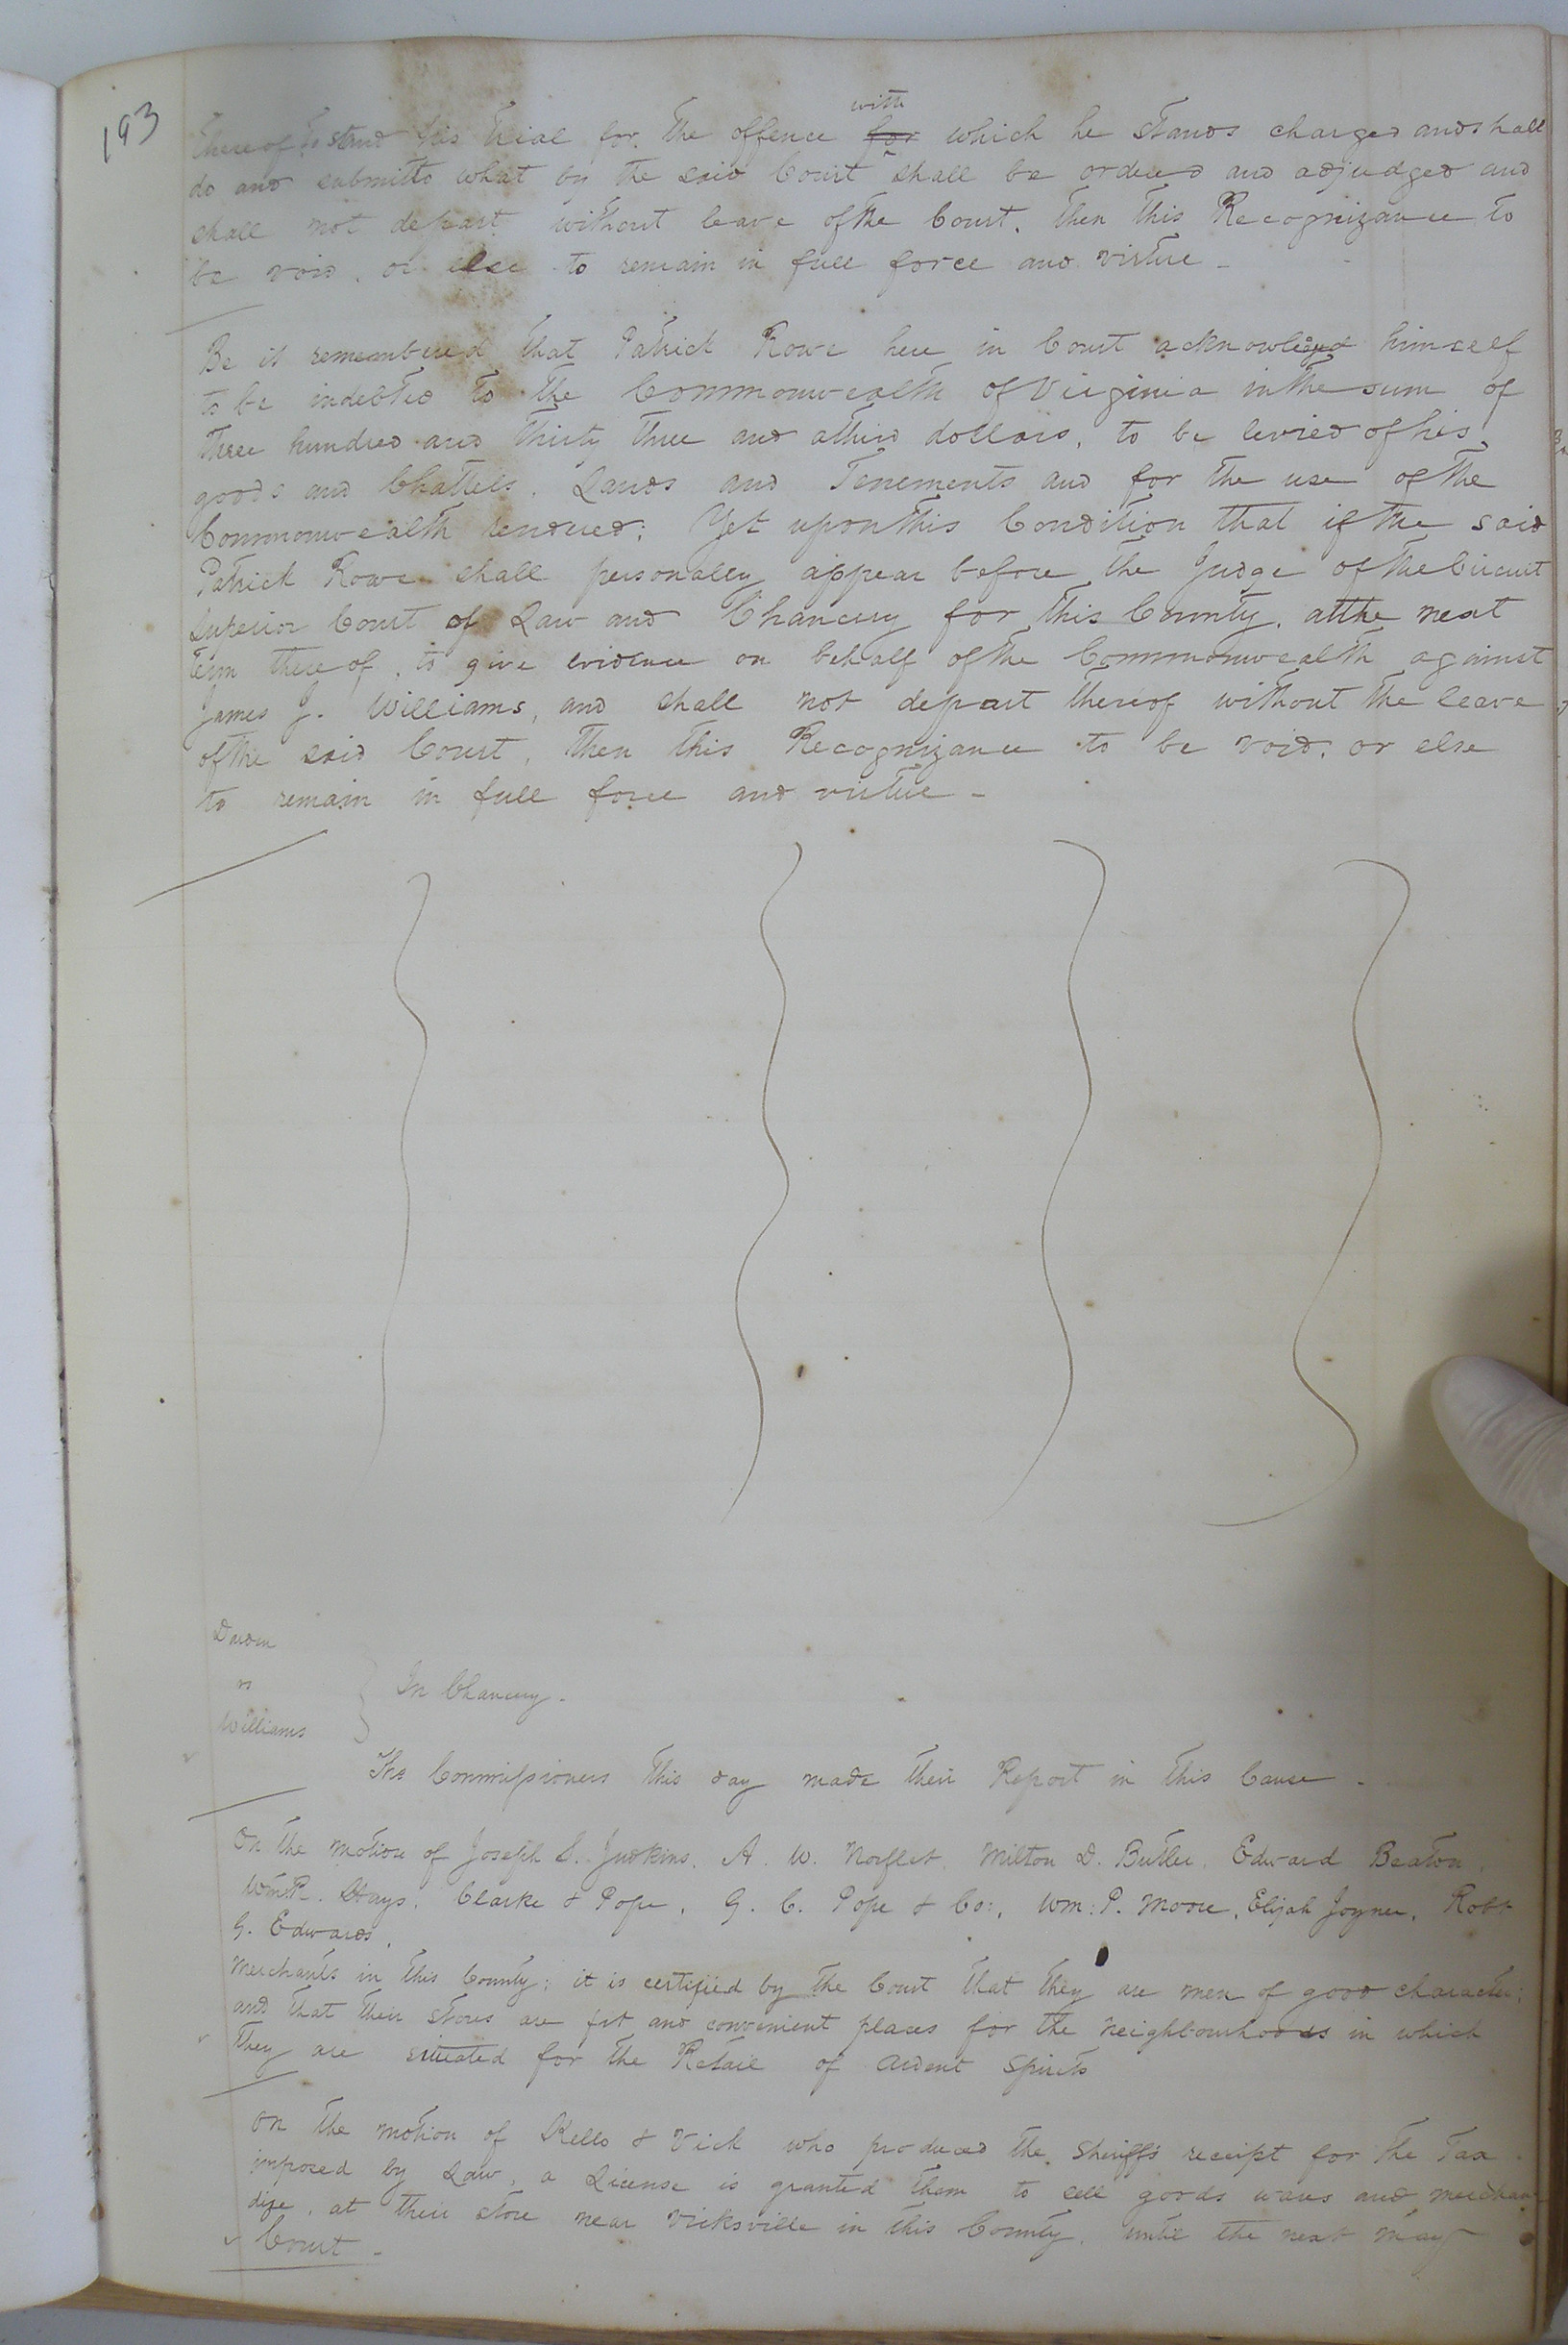 193
thereof to stand his trial for the offence for with which he stands charged and shall
do and submit to what by the said Court shall be ordered and adjudged and
shall not depart without leave of the Court, then this Recognizance to
be void, or else to remain in full force and virtue -
Be it remembered that Patrick Rowe here in Court acknowledged himself
to be indebted to the Commonwealth of Virginia in the sum of
three hundred and thirty three and a third dollars, to be levied of his
goods and Chattels, Lands and Tenements and for the use of the
Commonwealth rendered: Yet upon this Condition that if the said
Patrick Rowe shall personally appear before the Judge of the Circuit
Superior Court of Law and Chancery for this County, at the next
term thereof, to give evidence on behalf of the Commonwealth against
James J. Williams, and shall not depart thereof without the leave
of the said Court, then this Recognizance to be void, or else
to remain in full force and virtue -
Darden
vs
Williams
In Chancery -
The Commissioners this day made their Report in this Cause -
On the motion of Joseph S. Judkins, A. W. Norflet, Milton D. Butler, Edward Beaton,
Wm R. Hays, Clarke & Pope, G. C. Pope & Co:, Wm: P. Moore, Elijah Joyner, Robt
G. Edwards,
Merchants in this County; it is certified by the Court that they are men of good character;
and that their stores are fit and convenient places for the neighbourhoods in which
they are situated for the Retail of ardent Spirits
On the motion of Kello & Vick who produced the Sheriff's receipt for the Tax
imposed by Law, a License is granted them to sell goods wares and merchan
dize, at their store near Vicksville in this County, until the next May
Court -